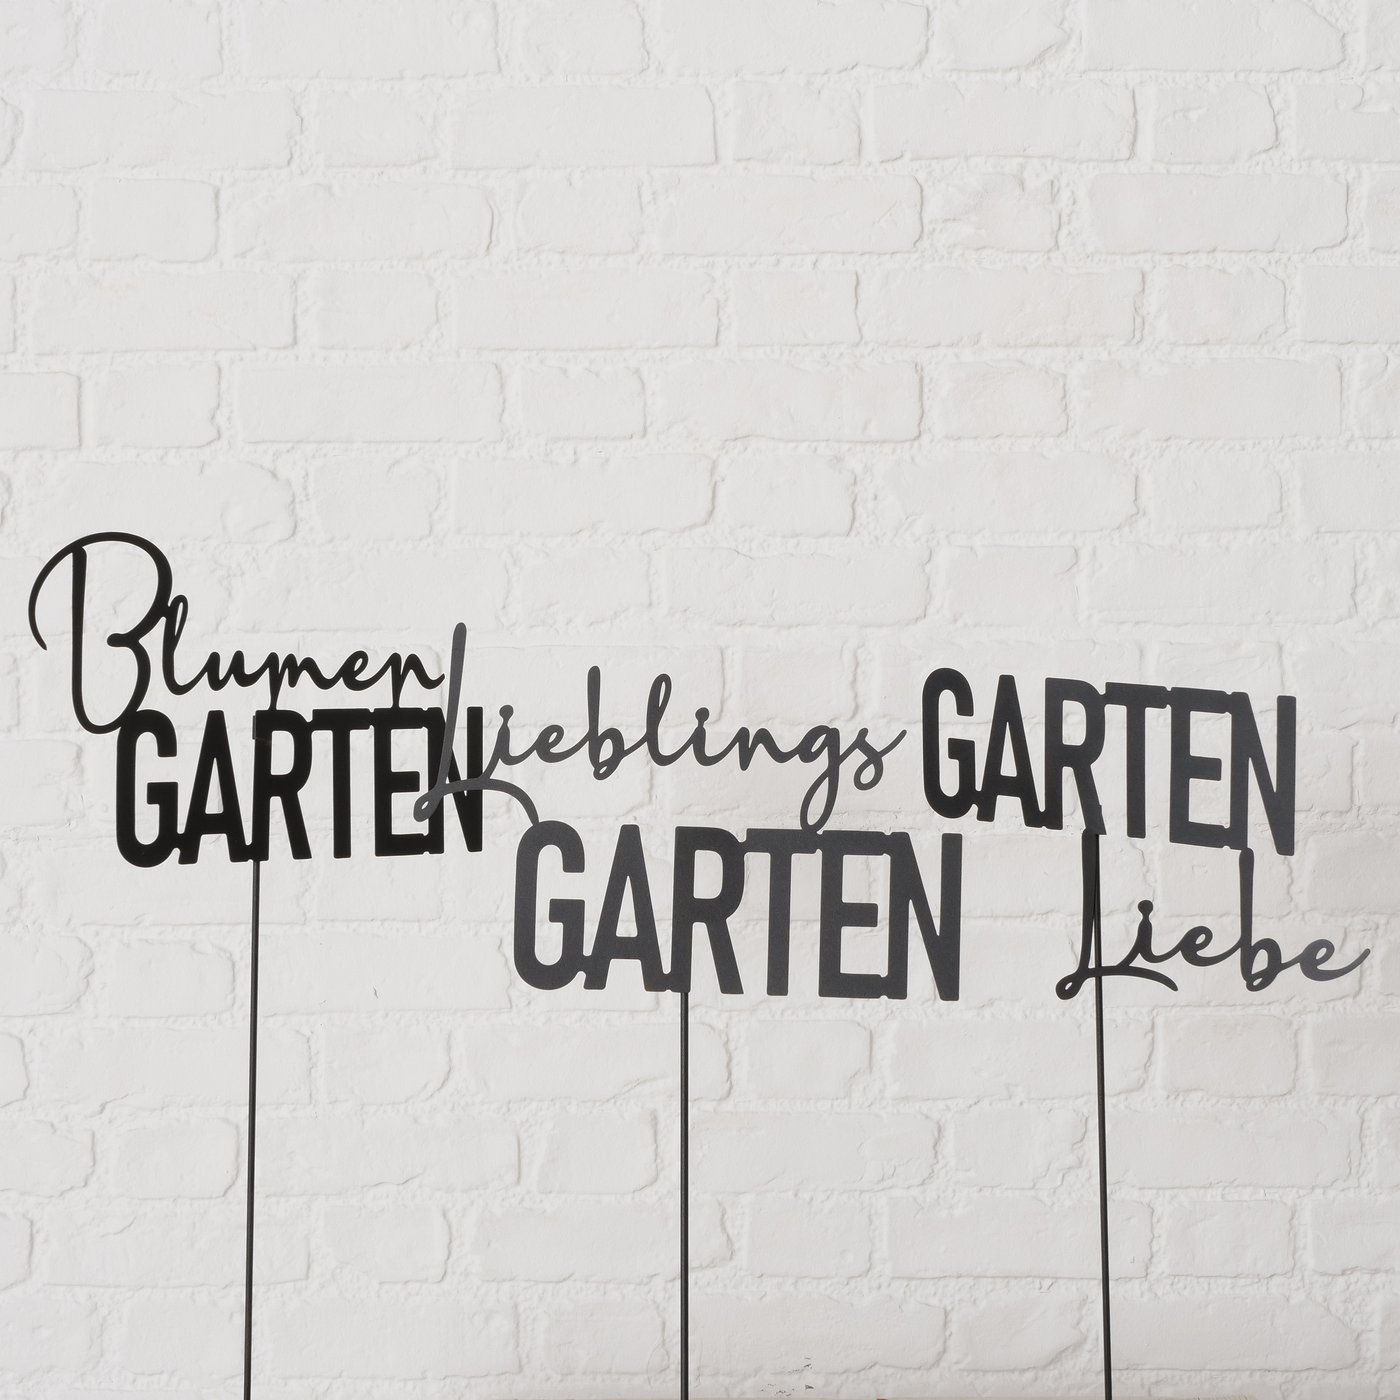 Blumen
GARTEN
Lieblings
GARTEN
GARTEN
Liebe